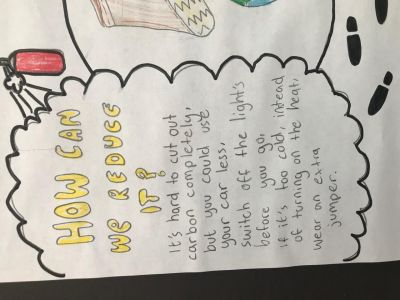 HOW CAN
WE REDUCE
IT?
It's hard to cut out
carbon completely,
but you could use
your car less,
switch off the light's
before you go,
if it's too cold, intead
of turning on the heat,
wear an extra
jumper.